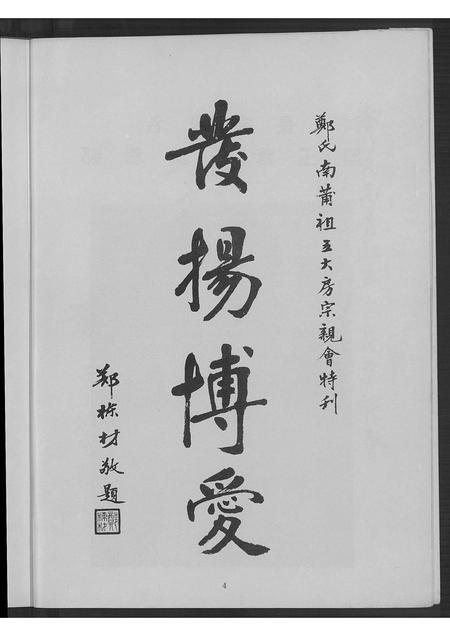 鄭氏南莆祖五大房宗親會特刊
發揚博愛
郑栋材敬題
4